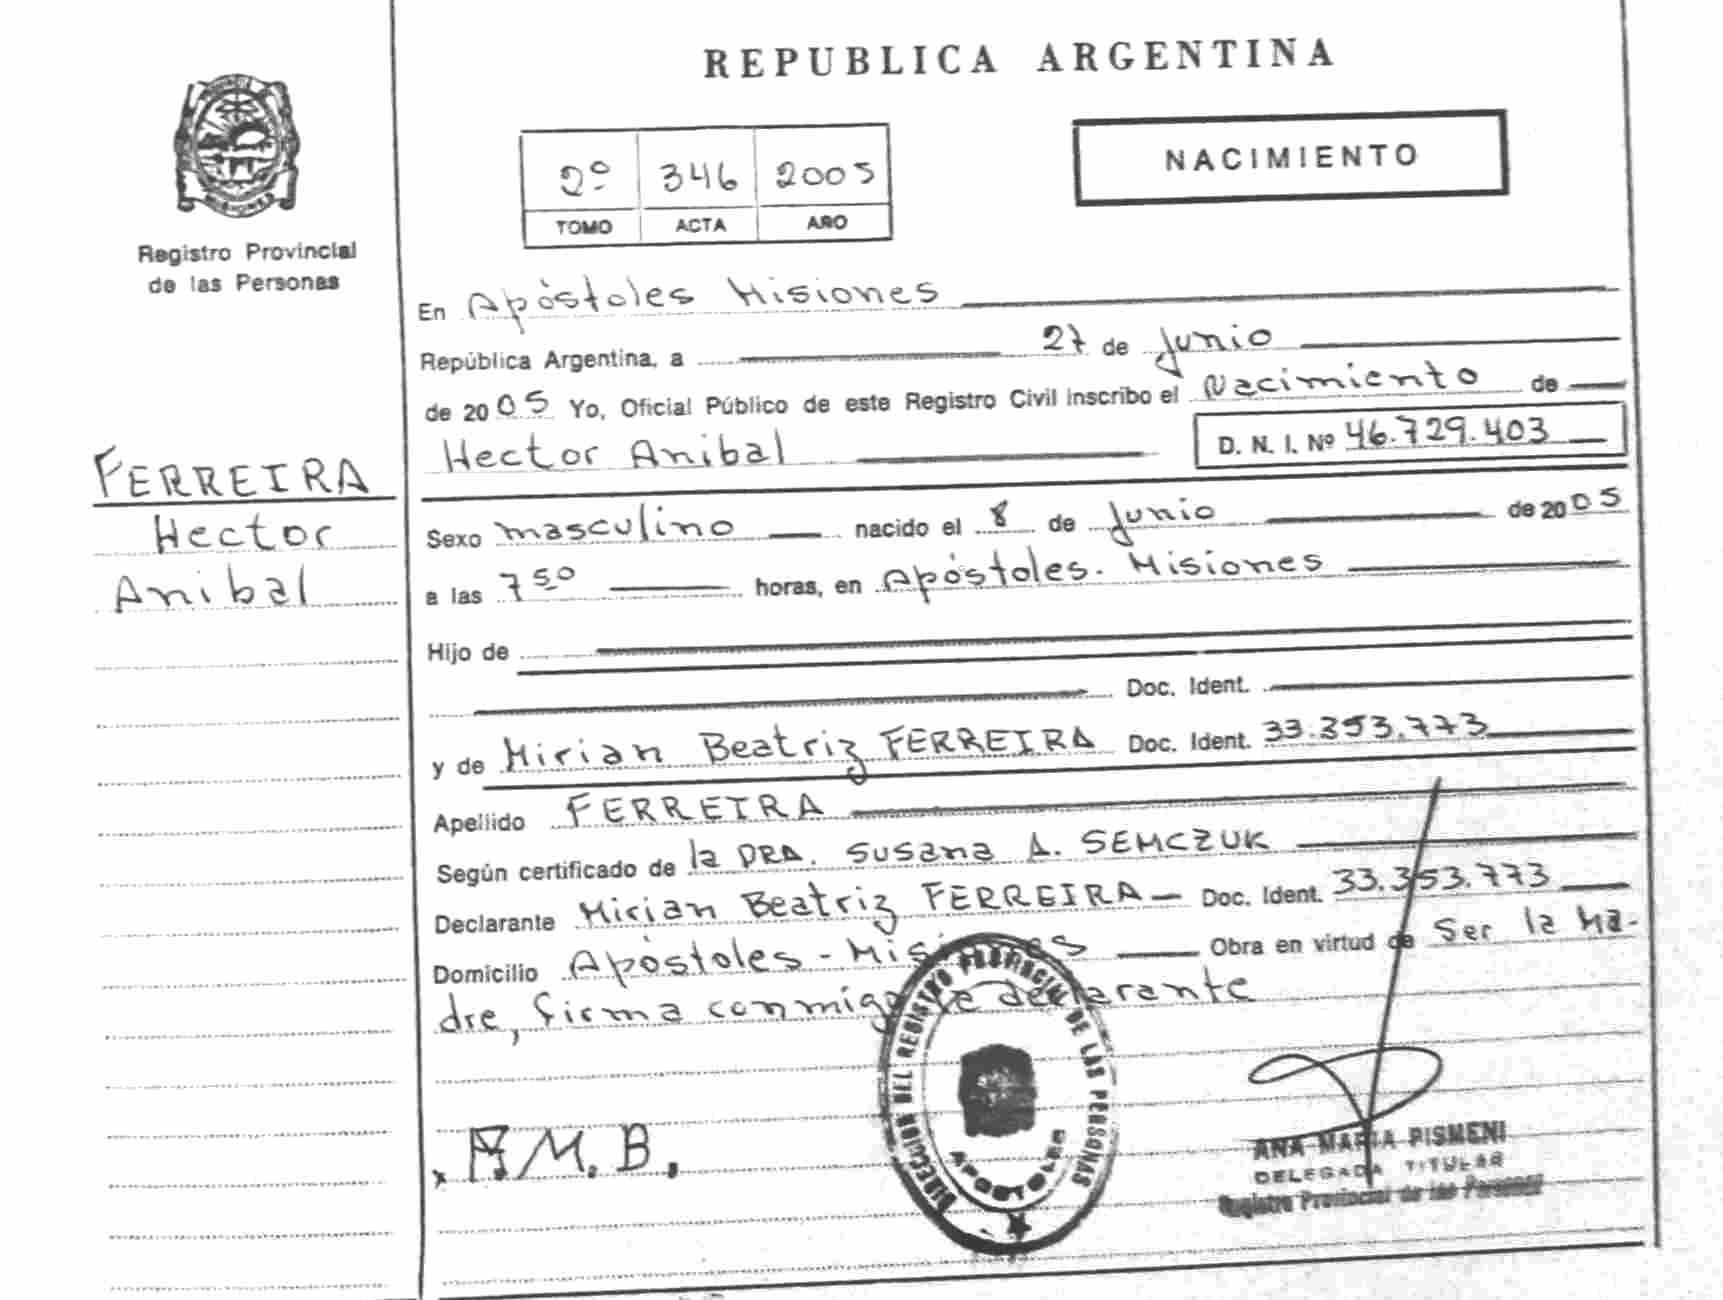 REPUBLICA ARGENTINA
NACIMIENTO
2º 346 2005
TOMO ACTA AÑO
MISIONES
Registro Provincial
de las Personas
En Apóstoles Misiones
República Argentina, a 27 de Junio
de 2005 Yo, Oficial Público de este Registro Civil inscribo el Nacimiento de
Hector Anibal D. N. I. Nº 46.729.403
FERREIRA
Hector
Anibal
Sexo masculino nacido el 8 de Junio de 2005
a las 7 50 horas, en Apóstoles. Misiones
Hijo de
Doc. Ident.
y de Mirian Beatriz FERREIRA Doc. Ident. 33.353.773
Apellido FERREIRA
Según certificado de la DRA. Susana A. SEMCZUK
Declarante Mirian Beatriz FERREIRA Doc. Ident. 33.353.773
Domicilio Apóstoles - Misiones Obra en virtud de Ser la Ma-
dre, firma conmigo la declarante
DIRECCION DEL REGISTRO PROVINCIAL DE LAS PERSONAS
APOSTOLES
F.M.B.
ANA MARIA PISMENI
DELEGADA TITULAR
Registro Provincial de las Personas